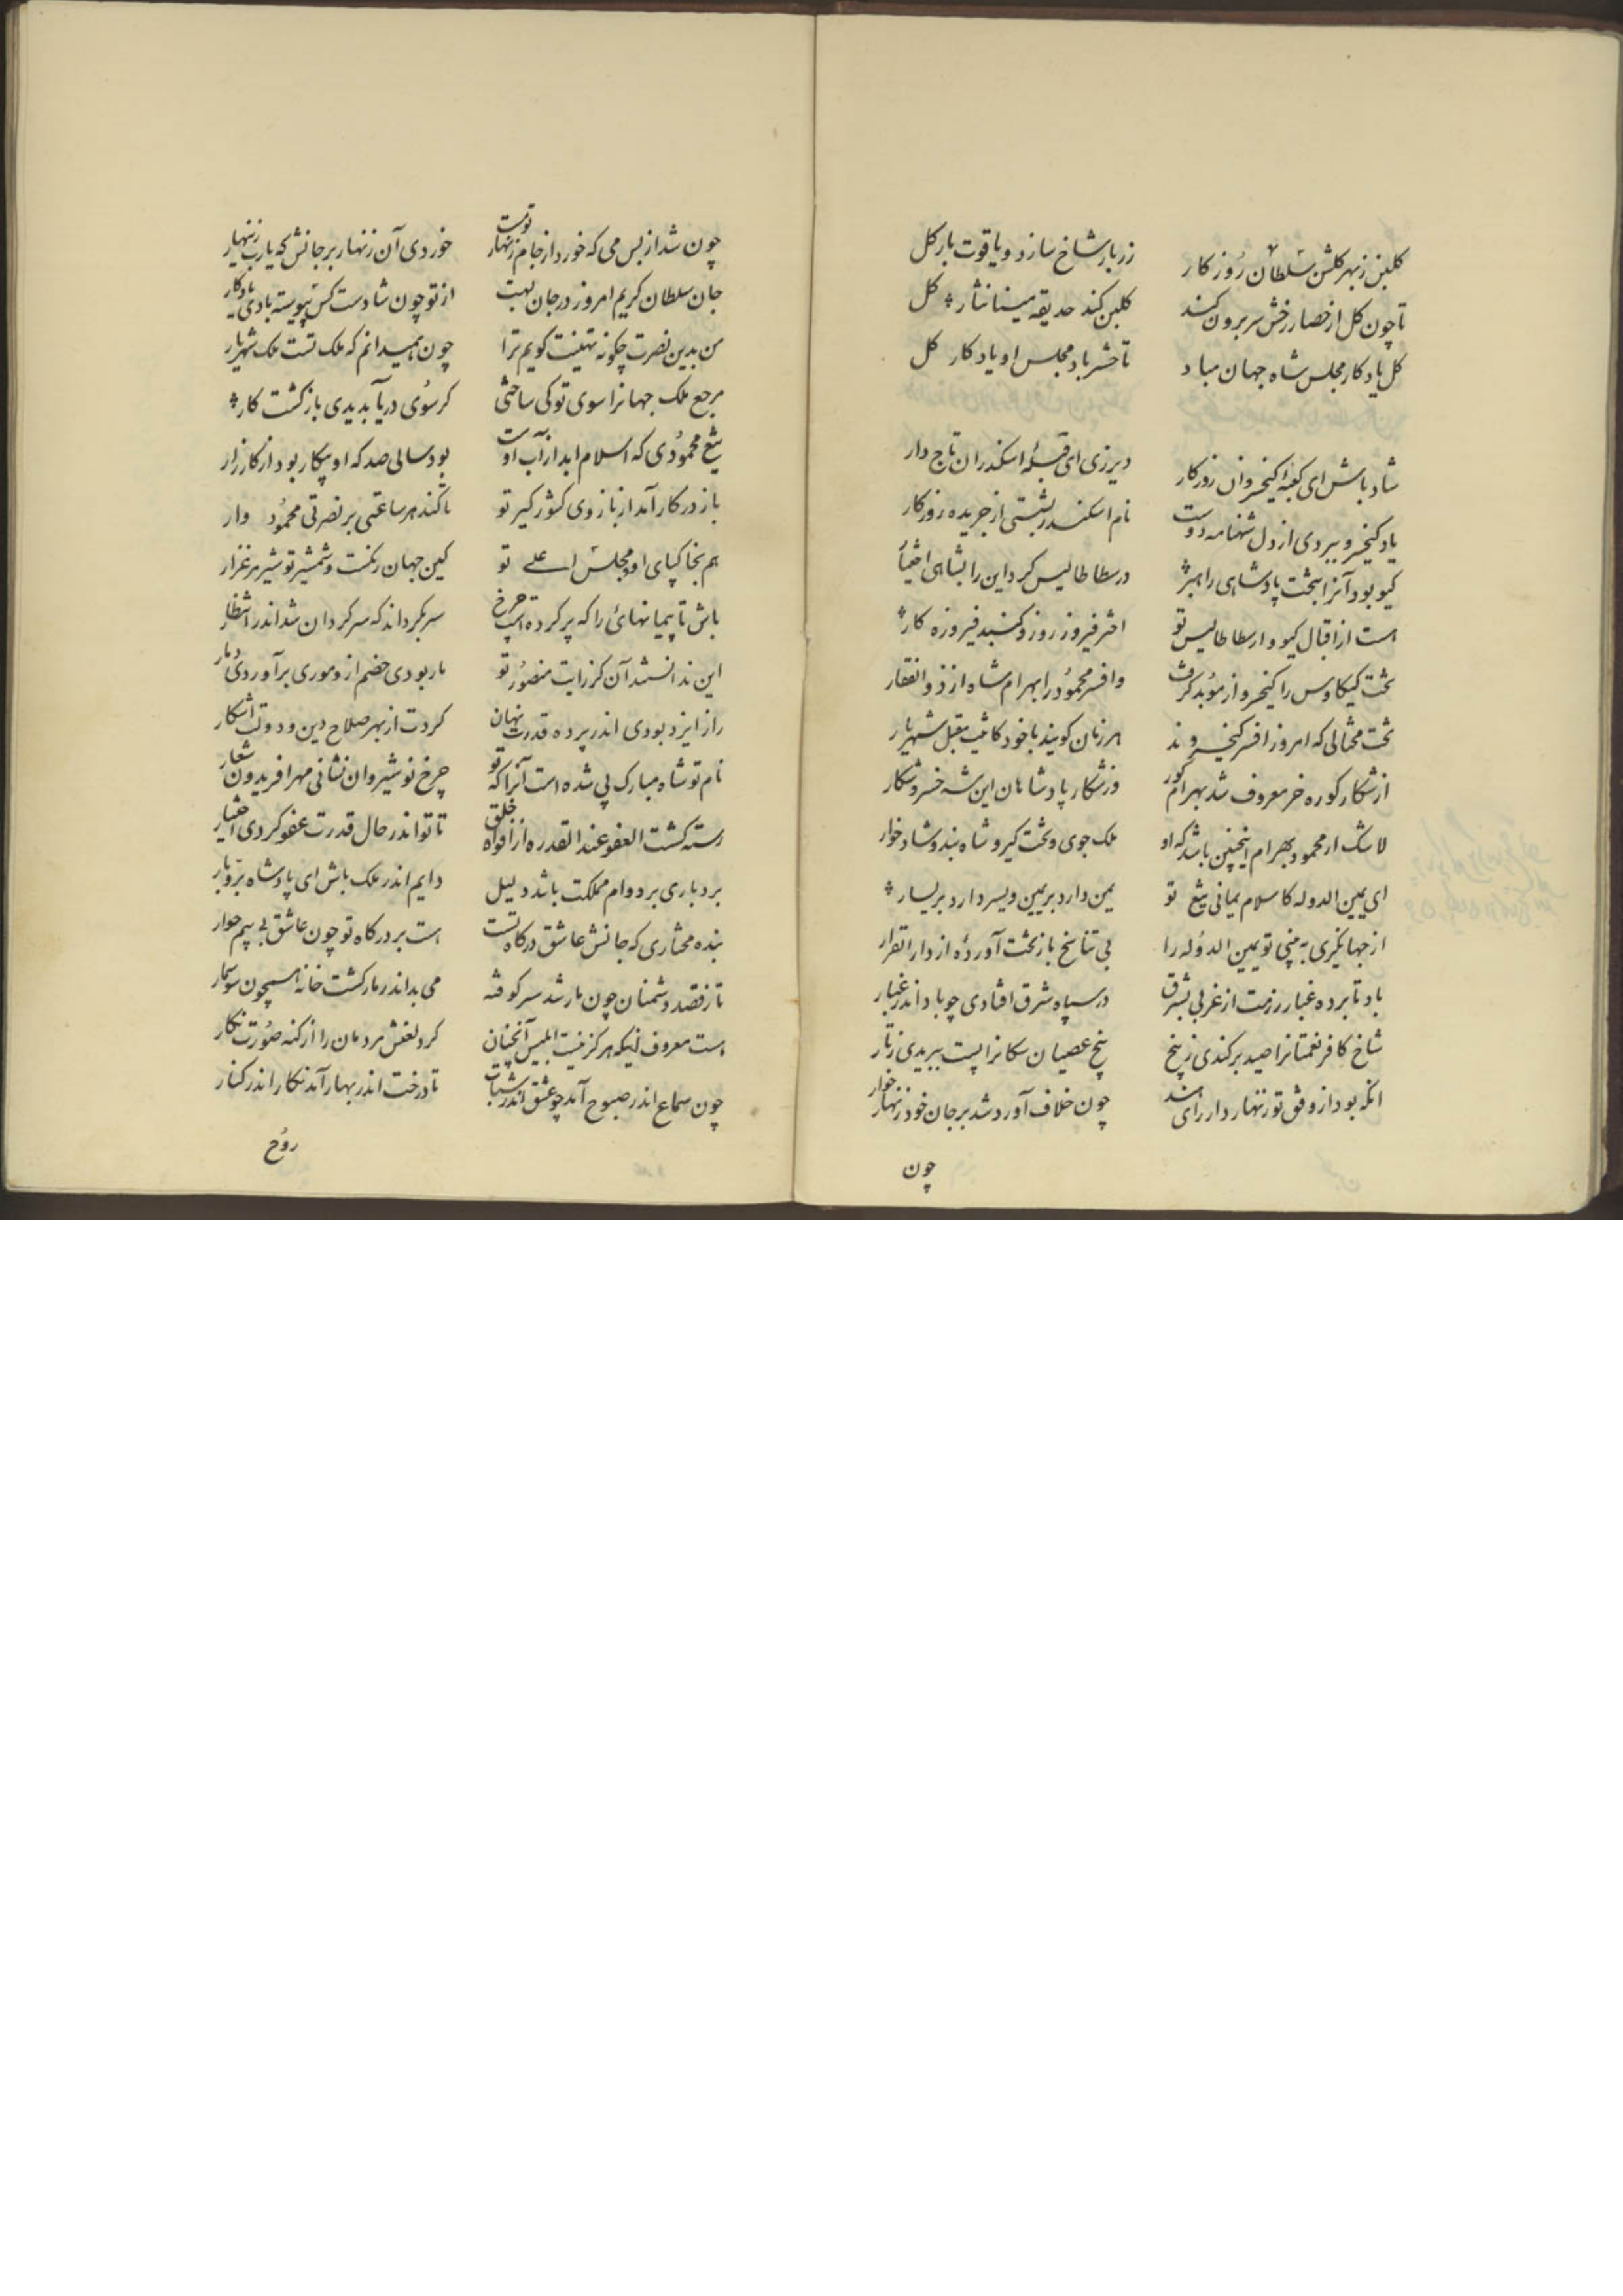 کلبن زبهر کلشن سلطان روزکار
زربار شاخ سازد و یاقوت بار کل
تا چون کل از حصار رخش سر برون کند
کلبن کند حدیقه مینا نثار کل
کل یادکار مجلس شاه جهان مباد
تا حشر باد مجلس او یادکار کل
شاد باش ای کعبه کیخسروان روزکار
دیر زی ای قبله اسکندران تاج دار
یاد کیخسرو ببردی از دل شهنامه دوست
نام اسکندر بشستی از جریده روزکار
کیو بود آنرا بتخت پادشاهی راهبر
ارسطاطالیس کرد این را بشاهی اختیار
هست از اقبال کیو و ارسطاطالیس تو
اختر فیروز روز و کنبد فیروزه کار
تخت کیکاوس را کیخسرو از موبد کرفت
وافسر محمود را بهرام شاه از ذوالفقار
تخت محتالی که امروز افسر کیخسروند
هر زمان کویند با خود کاینت مقبل شهریار
از شکار کوره خر معروف شد بهرام کور
وز شکار پادشاهان این شه خسرو شکار
لاشک ار محمود بهرام اینچنین باشد که او
ملک جوی و تخت کیر و شاه بند و شادخوار
ای یمین الدوله کاسلام یمانی تیغ تو
یمن دارد بر یمین و یسر دارد بر یسار
از جهانکیری به بینی تو یمین الدوله را
بی تناسخ باز تخت آورده از دار القرار
باد تا برده غبار رزمت از غربی بشرق
در سپاه شرق افتادی چو باد اندر غبار
شاخ کافر نعمتانرا صید برکندی ز بیخ
بیخ عصیان سکانرا پست ببریدی ز بار
انکه بود از وفق تو زنهار دار رای هند
چون خلاف آورد شد بر جان خود زنهار خوار
چون
چون شد از بس می که خورد از جام زنهار تو مست
خوردی آن زنهار بر جانش که یارب زینهار
جان سلطان کریم امروز در جان بهت
از تو چون شادست کس پیوسته بادی یادکار
من بدین نصرت چکونه تهنیت کویم ترا
چون همیدانم که ملک تست ملک شهریار
مرجع ملک جهانرا سوی تو کی ساختی
کر سوی دریا بدیدی بازکشت کار
تیغ محمودی که اسلام ابدار از آب اوست
بود سالی صد که او بیکار بود از کارزار
باز در کار آمد از بازوی کشور کیر تو
تا کند هر ساعتی بر نصرتی محمود وار
هم بخاکپای او مجلس اعلی تو
کین جهان رنکست و شمشیر تو شیر مرغزار
باش تا پیمانهائی را که پر کردست چرخ
سر بکرداند که سرکردان شد اندر انتظار
این ندانستند آن کز رایت منصور تو
مار بودی خصم از و موری برآوردی دمار
راز ایزد بودی اندر پرده قدرت نهان
کردت از بهر صلاح دین و دولت اشکار
نام تو شاه مبارک پی شده است آنرا که تو
چرخ نوشیروان نشانی مهر افریدون شعار
رسته کشت العفو عند القدره از افواه خلق
تا تو اندر حال قدرت عفو کردی اختیار
بردباری بر دوام مملکت باشد دلیل
دایم اندر ملک باش ای پادشاه بردبار
بنده مختاری که جانش عاشق درکاه تست
هست بر درکاه تو چون عاشق بی سیم خوار
تا ز قصد دشمنان چون مار شد سر کوفته
می بداند مار کشت خانه همچون سوسمار
هست معروف اینکه هرکز نیست ابلیس آنچنان
کرد لعنش مردمان را از کنه صورت نکار
چون سماع اندر صبوح آمد چو عشق اندر شباب
تا درخت اندر بهار آمد نکار اندر کنار
روح